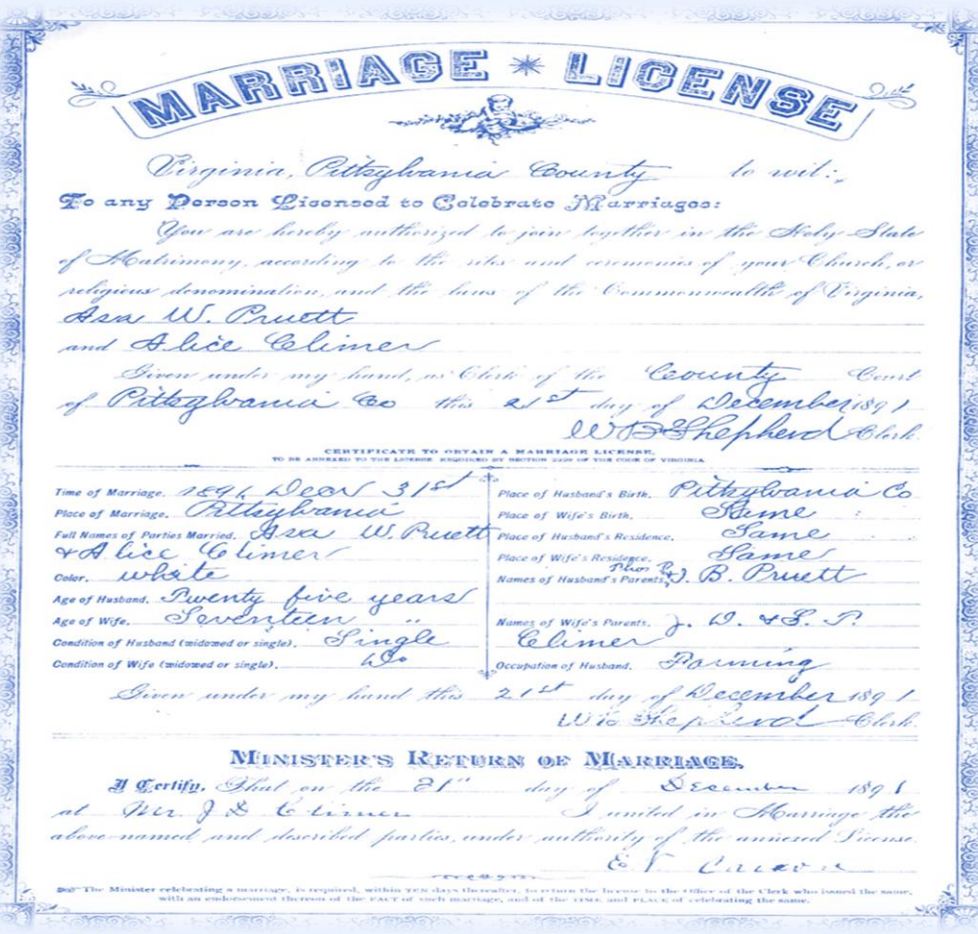 MARRIAGE * LICENSE
Virginia, Pittsylvania County to wit:
To any Person Licensed to Celebrate Marriages:
You are hereby authorized to join together in the Holy State
of Matrimony, according to the rites and ceremonies of your Church, or
religious denomination, and the laws of the Commonwealth of Virginia,
Asa W. Pruett
and Alice Climer
Given under my hand, as Clerk of the County Court
of Pittsylvania Co this 21st day of December 1891
W B Shepherd Clerk.
CERTIFICATE TO OBTAIN A MARRIAGE LICENSE,
TO BE ANNEXED TO THE LICENSE REQUIRED BY SECTION 2229 OF THE CODE OF VIRGINIA
Time of Marriage, 1891, Decr 31st
Place of Marriage, Pittsylvania
Full Names of Parties Married, Asa W. Pruett
& Alice Climer
Color, white
Age of Husband, Twenty five years
Age of Wife, Seventeen "
Condition of Husband (widowed or single), Single
Condition of Wife (widowed or single), Do
Place of Husband's Birth, Pittsylvania Co
Place of Wife's Birth, Same
Place of Husband's Residence, Same
Place of Wife's Residence, Same
Names of Husband's Parents, Thos P. & J. B. Pruett
Names of Wife's Parents, J. D. & S. P.
Climer
Occupation of Husband, Farming
Given under my hand this 21st day of December 1891
W B Shepherd Clerk.
MINISTER'S RETURN OF MARRIAGE.
I Certify, That on the 31" day of December 1891
at Mr. J D Climer I united in Marriage the
above-named and described parties, under authority of the annexed License.
E
The Minister celebrating a marriage, is required, within TEN days thereafter, to return the license to the Office of the Clerk who issued the same,
with an endorsement thereon of the FACT of such marriage, and of the TIME and PLACE of celebrating the same.